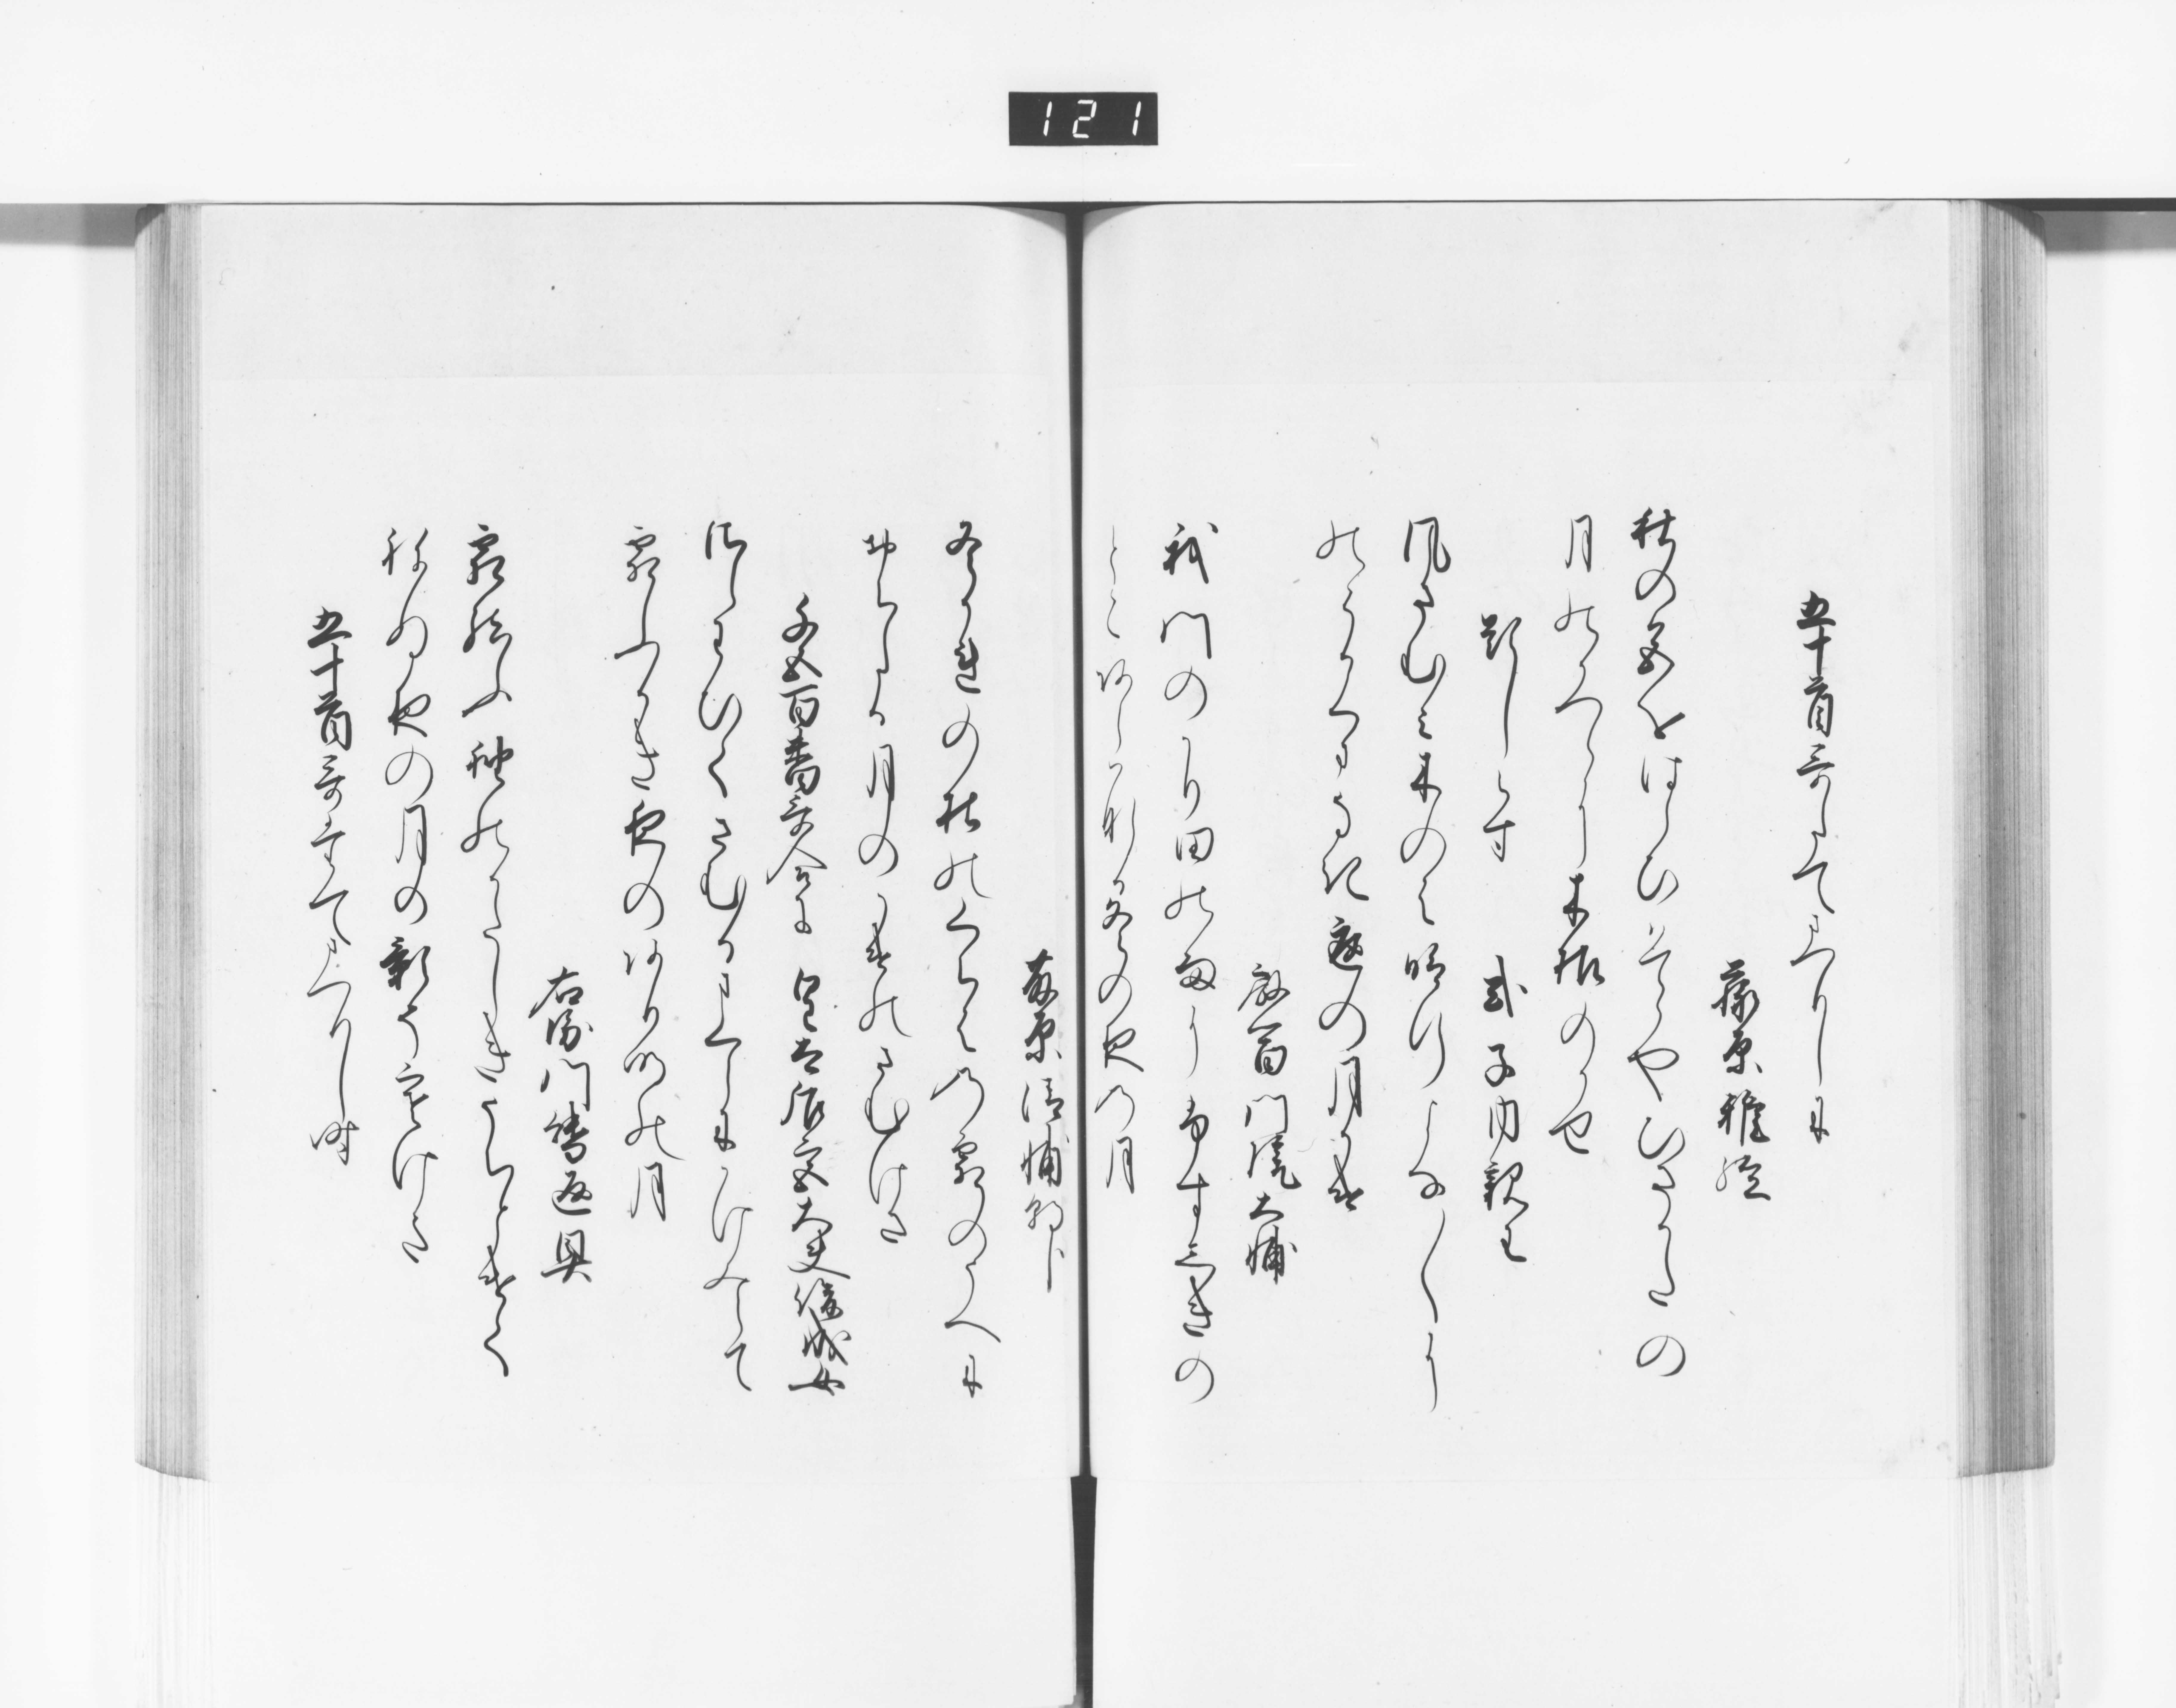 121
五十首哥たてまつりしに
藤原雅経
秋の色をはらひはてゝやひさかたの
月のかつらに木枯のかせ
題しらす　式子内親王
風さむみ木のは晴行よな〳〵に
のこるくまなき庭の月かけ
殷冨門院大輔
我門のかり田のねやにふすしきの
とこあらはなる冬の夜の月
藤原清輔朝臣
冬かれの杜のくちはの霜のうへに
おちたる月のかけのさむけさ
千五百番哥合に　皇太后宮大夫俊成女
さえわひてさむるまくらにかけみれは
霜ふかき夜のあり明の月
右衛門督通具
霜結ふ袖のかたしきうちとけて
ねぬ夜の月の影そさむけき
五十首哥たてまつりし時